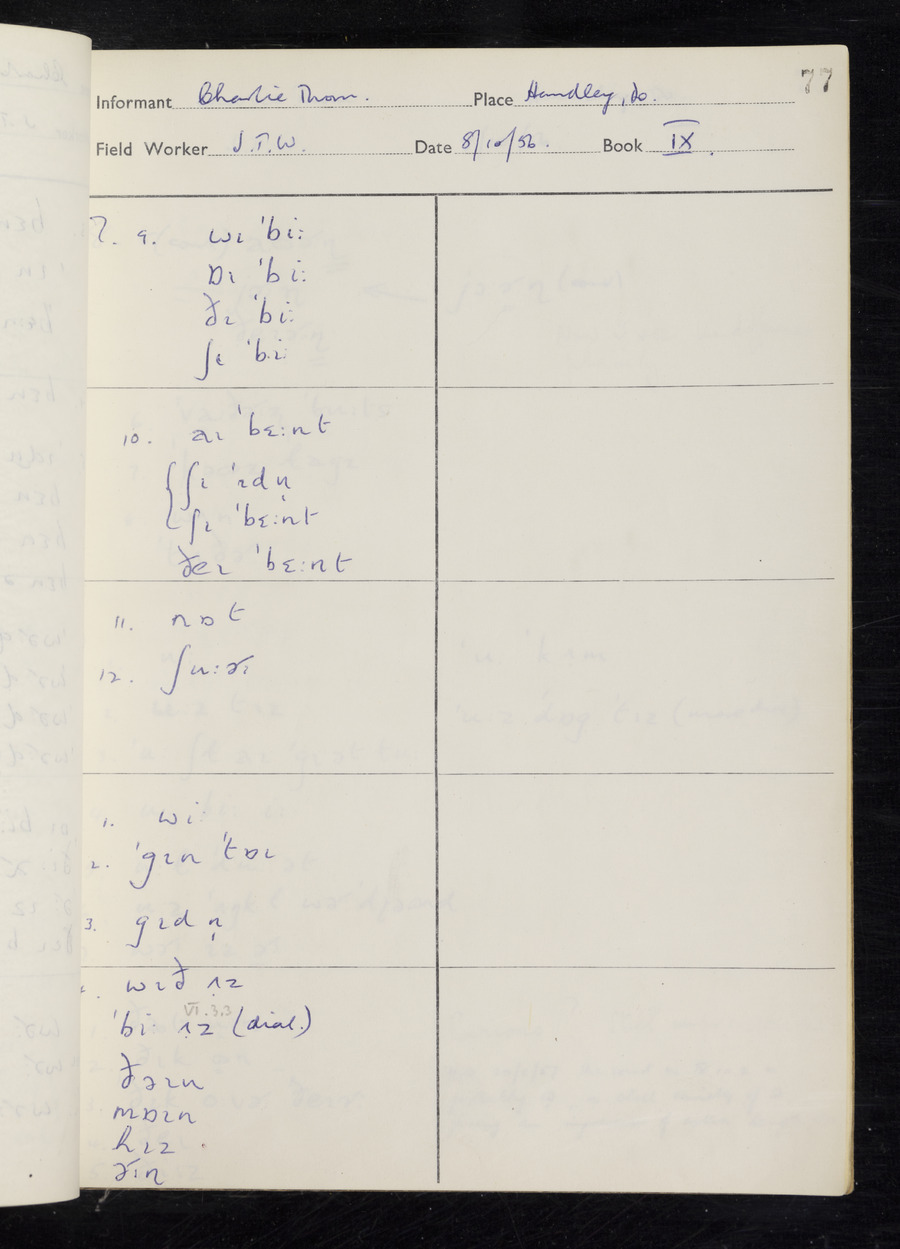 77
Informant Charlie Thorn. Place Handley, Do.
Field Worker J.T.W. Date 8/10/56. Book IX.
7. 9. wɪ ˈbiː
ɒɪ ˈbiː
ðɪ ˈbiː
ʃɪ ˈbiː
10. aɪ ˈbɛːnt
ʃɪ ˈɪdn̩
ʃɪ ˈbɛːnt
ðeɪ ˈbɛːnt
11. nɒt
12. ʃuːɚ
1. wiː
2. ˈgɪn ˈtɒɪ
3. gɪdn̩
wɪð ʌz
VI.3.3
ˈbiː ʌz (dial.)
ðəɪn
mɒɪn
hɪz